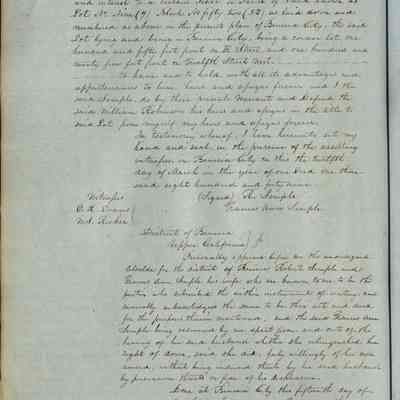 and interest to a certain Piece or Parcel of Land known as
Lot No. Nine (9) Block No fifty two (52) as laid down and
numbered as above on the general plan of Benicia City, the said
Lot lying and being in Benicia City, being a corner lot one
hundred and fifty feet front on Street and one hundred and
twenty five feet front on Twelfth Street West.
To have and to hold with all its advantages and
appurtenances to him his heirs and assigns forever and I the
said Semple, do by these presents Warrant and Defend the
said William Robinson his heirs and assigns in the title to
said Lot from myself my heirs and assigns forever.
In testimony whereof, I have hereunto set my
hand and seal in the presence of the
witnesses in Benicia City on this the twelfth
day of March in the year of our Lord one thou-
sand eight hundred and forty nine.
Witnesses (Signed) Ro. Semple
Frances Ann Semple
District of Benicia
Upper California
Personally appeared before me the undersigned
Alcalde for the district of Benicia Robert Semple and
Frances Ann Semple his wife who are known to me to be the
parties who submitted the within instrument of writing and
severally acknowledged the same to be their act and deed
for the purposes therein mentioned, and the said Frances Ann
Semple being examined by me apart from and out of the
hearing of her said husband whether she relinquished her
right of dower, said she did, fully willingly of her own
accord, without being induced thereto by her said husband
by previous threats or fear of his displeasure.
Done at Benicia City this fifteenth day of